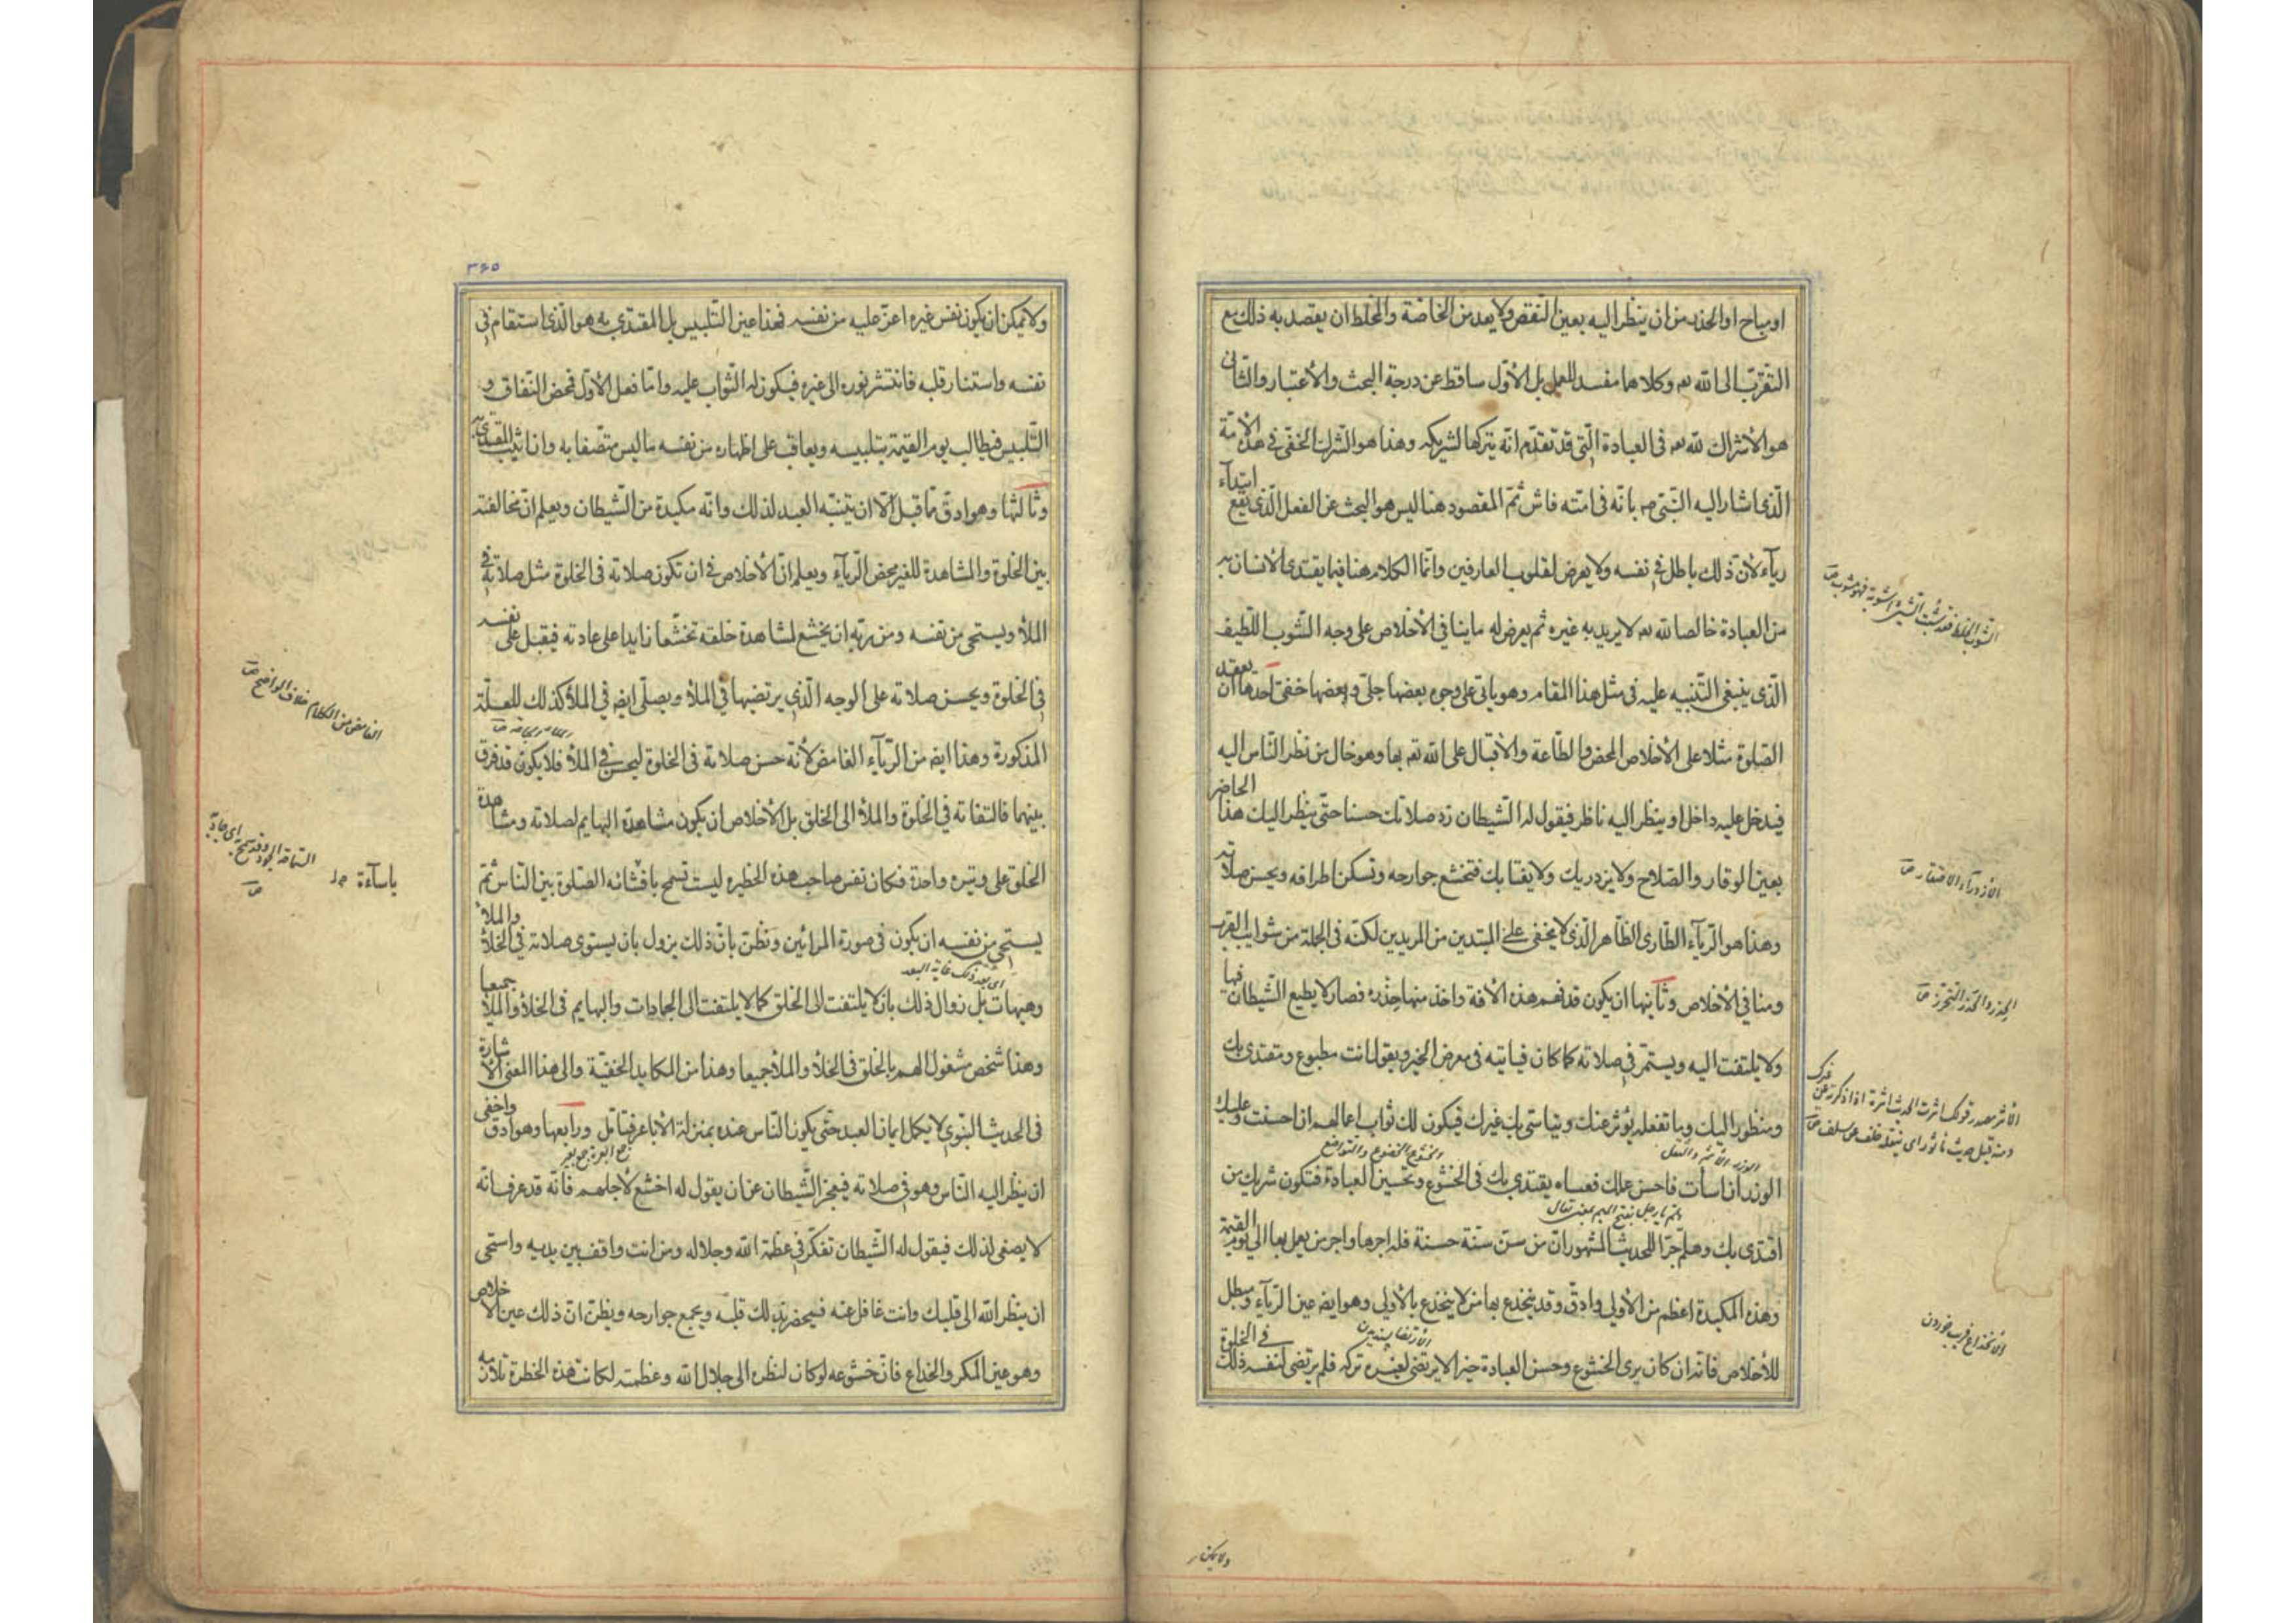 او مباح او الحذر من ان ينظر اليه بعين النقص ولا يعد من الخاصة والمخلط ان يقصد به ذلك مع
التقرّب الى الله تعـ وكلاهما مفسد للعمل بل الأول ساقط عن درجة البحث والأعتبار والثانى
هو الأشراك لله تعـ فى العبادة الّتى قد تقدّم انّه يتركها لشريكه وهذا هو الشّرك الخفىّ فى هذه الأمّة
الّذى اشار اليه النّبى صـ بانّه فى امّته فاش ثمّ المقصود هنا ليس هو البحث عن الفعل الّذى يقع ابتدآء
ريآء لأنّ ذلك باطل فى نفسه ولا يعرض لقلوب العارفين وانّما الكلام هنا فيما يقتدى الأنسان به
من العبادة خالصا لله تعـ لا يريد به غيره ثم يعرض له ما ينافى الأخلاص على وجه الشّوب اللّطيف
الّذى ينبغى التّنبيه عليه فى مثل هذا المقام وهو ياتى على وجوه بعضها جلىّ وبعضها خفىّ احدها ان يعقد
الصّلوة مثلا على الأخلاص المحض والطّاعة والأقبال على الله تعـ بها وهو خال من نظر النّاس اليه
فيدخل عليه داخل او ينظر اليه ناظر فيقول له الشّيطان زد صلاتك حسنا حتّى ينظر اليك هذا الحاضر
بعين الوقار والصّلاح ولا يزدريك ولا يغتابك فتخشع جوارحه وتسكن اطرافه ويحسن صلاته
وهذا هو الرّيآء الطّارى الظّاهر الّذى لا يخفى على المبتدين من المريدين لكنّه فى الجملة من شوايب القرب
ومنافى الأخلاص وثانيها ان يكون قد فهم هذه الأفة واخذ منها حذره فصار لا يطيع الشّيطان فيها
ولا يلتفت اليه ويستمرّ فى صلاته كما كان فياتيه فى معرض الخير ويقول انت مطبوع ومقتدى بك
ومنظور اليك وما تفعله يؤثر عنك ويتاسّى بك غيرك فيكون لك ثواب اعمالهم ان احسنت وعليك
الوزر ان اسأت فاحسن عملك فعساه يقتدى بك فى الخشوع وتحسين العبادة فتكون شريك من
اقتدى بك وهلم جرّا للحديث المشهور انّ من سنّ سنّة حسنة فله اجرها واجر من يعمل بها الى يوم القيمة
وهذه المكيدة اعظم من الأولى وادقّ وقد ينخدع بها من لا ينخدع بالأولى وهو ايضـ عين الرّيآء ومبطل
للأخلاص فانّه ان كان يرى الخشوع وحسن العبادة خيرا لا يرتضى لغيره تركه فلم يرتضى لنفسه ذلك فى الخلوة
الأزدرآء الأحتقار ص
الحذر والحذر التحرّز ص
الأنخداع فريب خوردن
الخشوع الخضوع والتواضع
ولا يمكن
٣٦٥
ولا يمكن ان يكون نفس غيره اعزّ عليه من نفسه فهذا عين التّلبيس بل المقتدى به هو الّذى استقام فى
نفسه واستنار قلبه فانتشر نوره الى غيره فيكون له الثّواب عليه وامّا فعل الأوّل فمحض النّفاق و
التّلبيس فيطالب يوم القيمة بتلبيسه ويعاقب على اظهاره من نفسه ما ليس متّصفا به وان اثيب المقتدى به
وثالثها وهو ادقّ ممّا قبل الّا ان يتنبّه العبد لذلك وانّه مكيدة من الشّيطان ويعلم انّ مخالفته
بين الخلوة والمشاهدة للغير محض الرّيآء ويعلم انّ الأخلاص فى ان تكون صلاته فى الخلوة مثل صلاته فى
الملأ ويستحى من نفسه ومن ربّه ان يخشع لمشاهدة خلقه تخشّعا زايدا على عادته فيقبل على نفسه
فى الخلوة ويحسن صلاته على الوجه الّذى يرتضيها فى الملأ ويصلّى ايضـ فى الملأ كذلك للعلّة
المذكورة وهذا ايضـ من الرّيآء الغامض لأنّه حسن صلاته فى الخلوة ليحسن فى الملأ فلا يكون قد فرق
بينهما فالتفاته فى الخلوة والملأ الى الخلق بل الأخلاص ان يكون مشاهدة البهايم لصلاته ومشاهدة
الخلق على وتيرة واحدة فكان نفس صاحب هذه الخطيره ليست تسمح بافشائه الصّلوة بين النّاس ثمّ
يستحى من نفسه ان يكون فى صورة المرائين ونظن بانّ ذلك يزول بان يستوى صلاته فى الخلأ والملأ
وهيهات بل زوال ذلك بان لا يلتفت الى الخلق كما لا يلتفت الى الجمادات والبهايم فى الخلأ والملأ جميعا
وهذا شخص مشغول الهم بالخلق فى الخلأ والملأ جميعا وهذا من المكايد الخفيّة والى هذا المعنى الأشارة
فى الحديث النّبوى لا يكمل ايمان العبد حتّى يكون النّاس عنده بمنزلة الأباعر فتامّل ورابعها وهو ادقّ واخفى
ان ينظر اليه النّاس وهو فى صلاته فيعجز الشّيطان عن ان يقول له اخشع لأجلهم فانّه قد عرف انّه
لا يصغى لذلك فيقول له الشّيطان تفكّر فى عظمة الله وجلاله ومن انت واقف بين يديه واستحى
ان ينظر الله الى قلبك وانت غافل عنه فيحضر بذلك قلبه ويجمع جوارحه ويظنّ انّ ذلك عين الأخلاص
وهو عين المكر والخداع فانّ خشوعه لو كان لنظره الى جلال الله وعظمته لكانت هذه الخطرة تلازمه
الغامض من الكلام خلاف الواضح ص
باسآءة